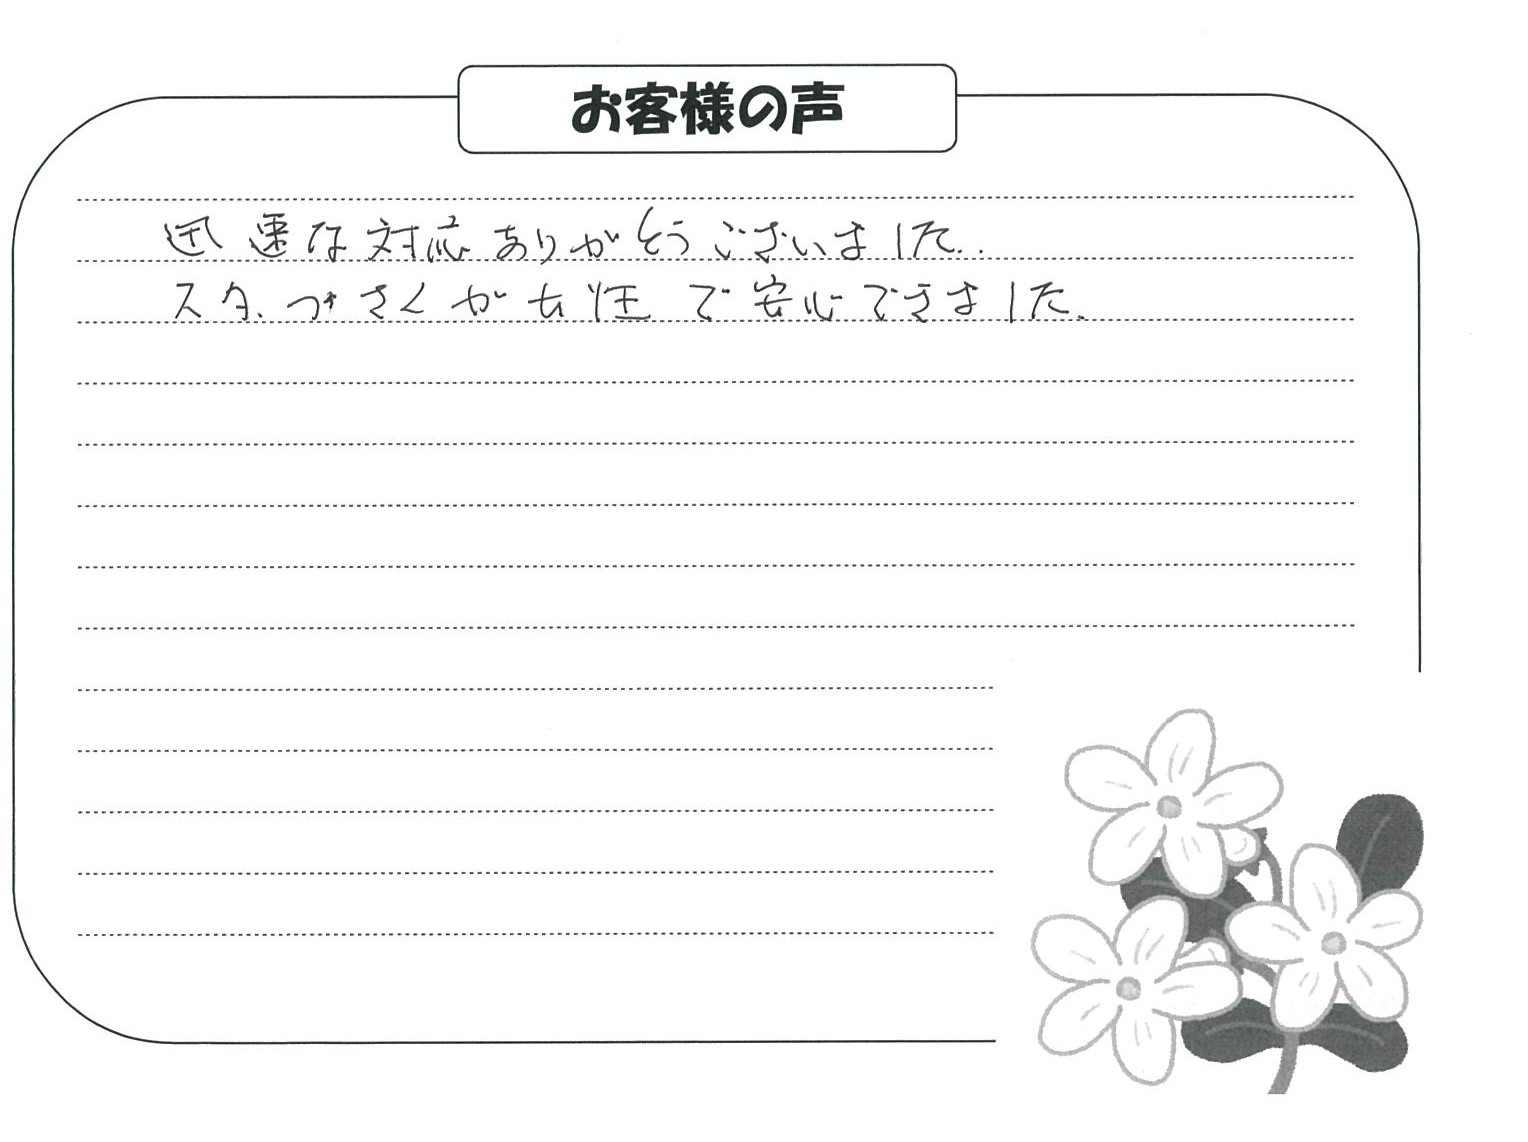 お客様の声
迅速な対応ありがとうございました。
スタッフさんが女性で安心できました。